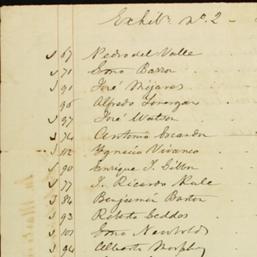 Exhib. No. 2 -
67 Pedro del Valle
71 Esno Barron
90 José Mijares
96 Alfredo Lonergan
97 José Watson
74 Antonio Escandon
102 Ygnacio Vivanco
90 Enrique J.
77 J. Ricardo
84 Benjamin Barton
93 Roberto Geddes
101 Esno Newbold
94 Alberto Murphy